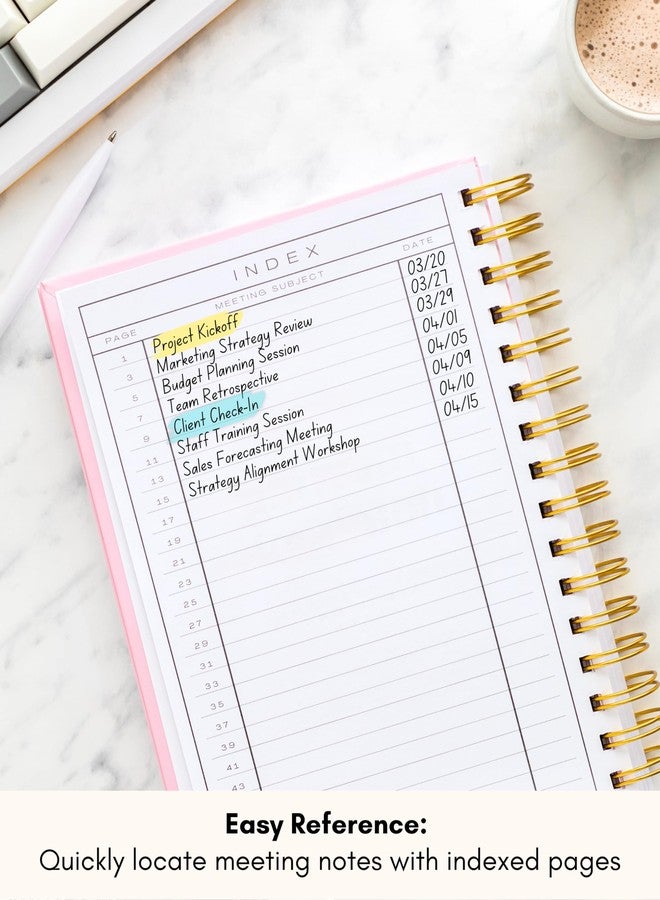 INDEX
PAGE MEETING SUBJECT DATE
1 Project Kickoff 03/20
3 Marketing Strategy Review 03/27
5 Budget Planning Session 03/29
7 Team Retrospective 04/01
9 Client Check-In 04/05
11 Staff Training Session 04/09
13 Sales Forecasting Meeting 04/10
15 Strategy Alignment Workshop 04/15
17
19
21
23
25
27
29
31
33
35
37
39
41
43
Easy Reference:
Quickly locate meeting notes with indexed pages